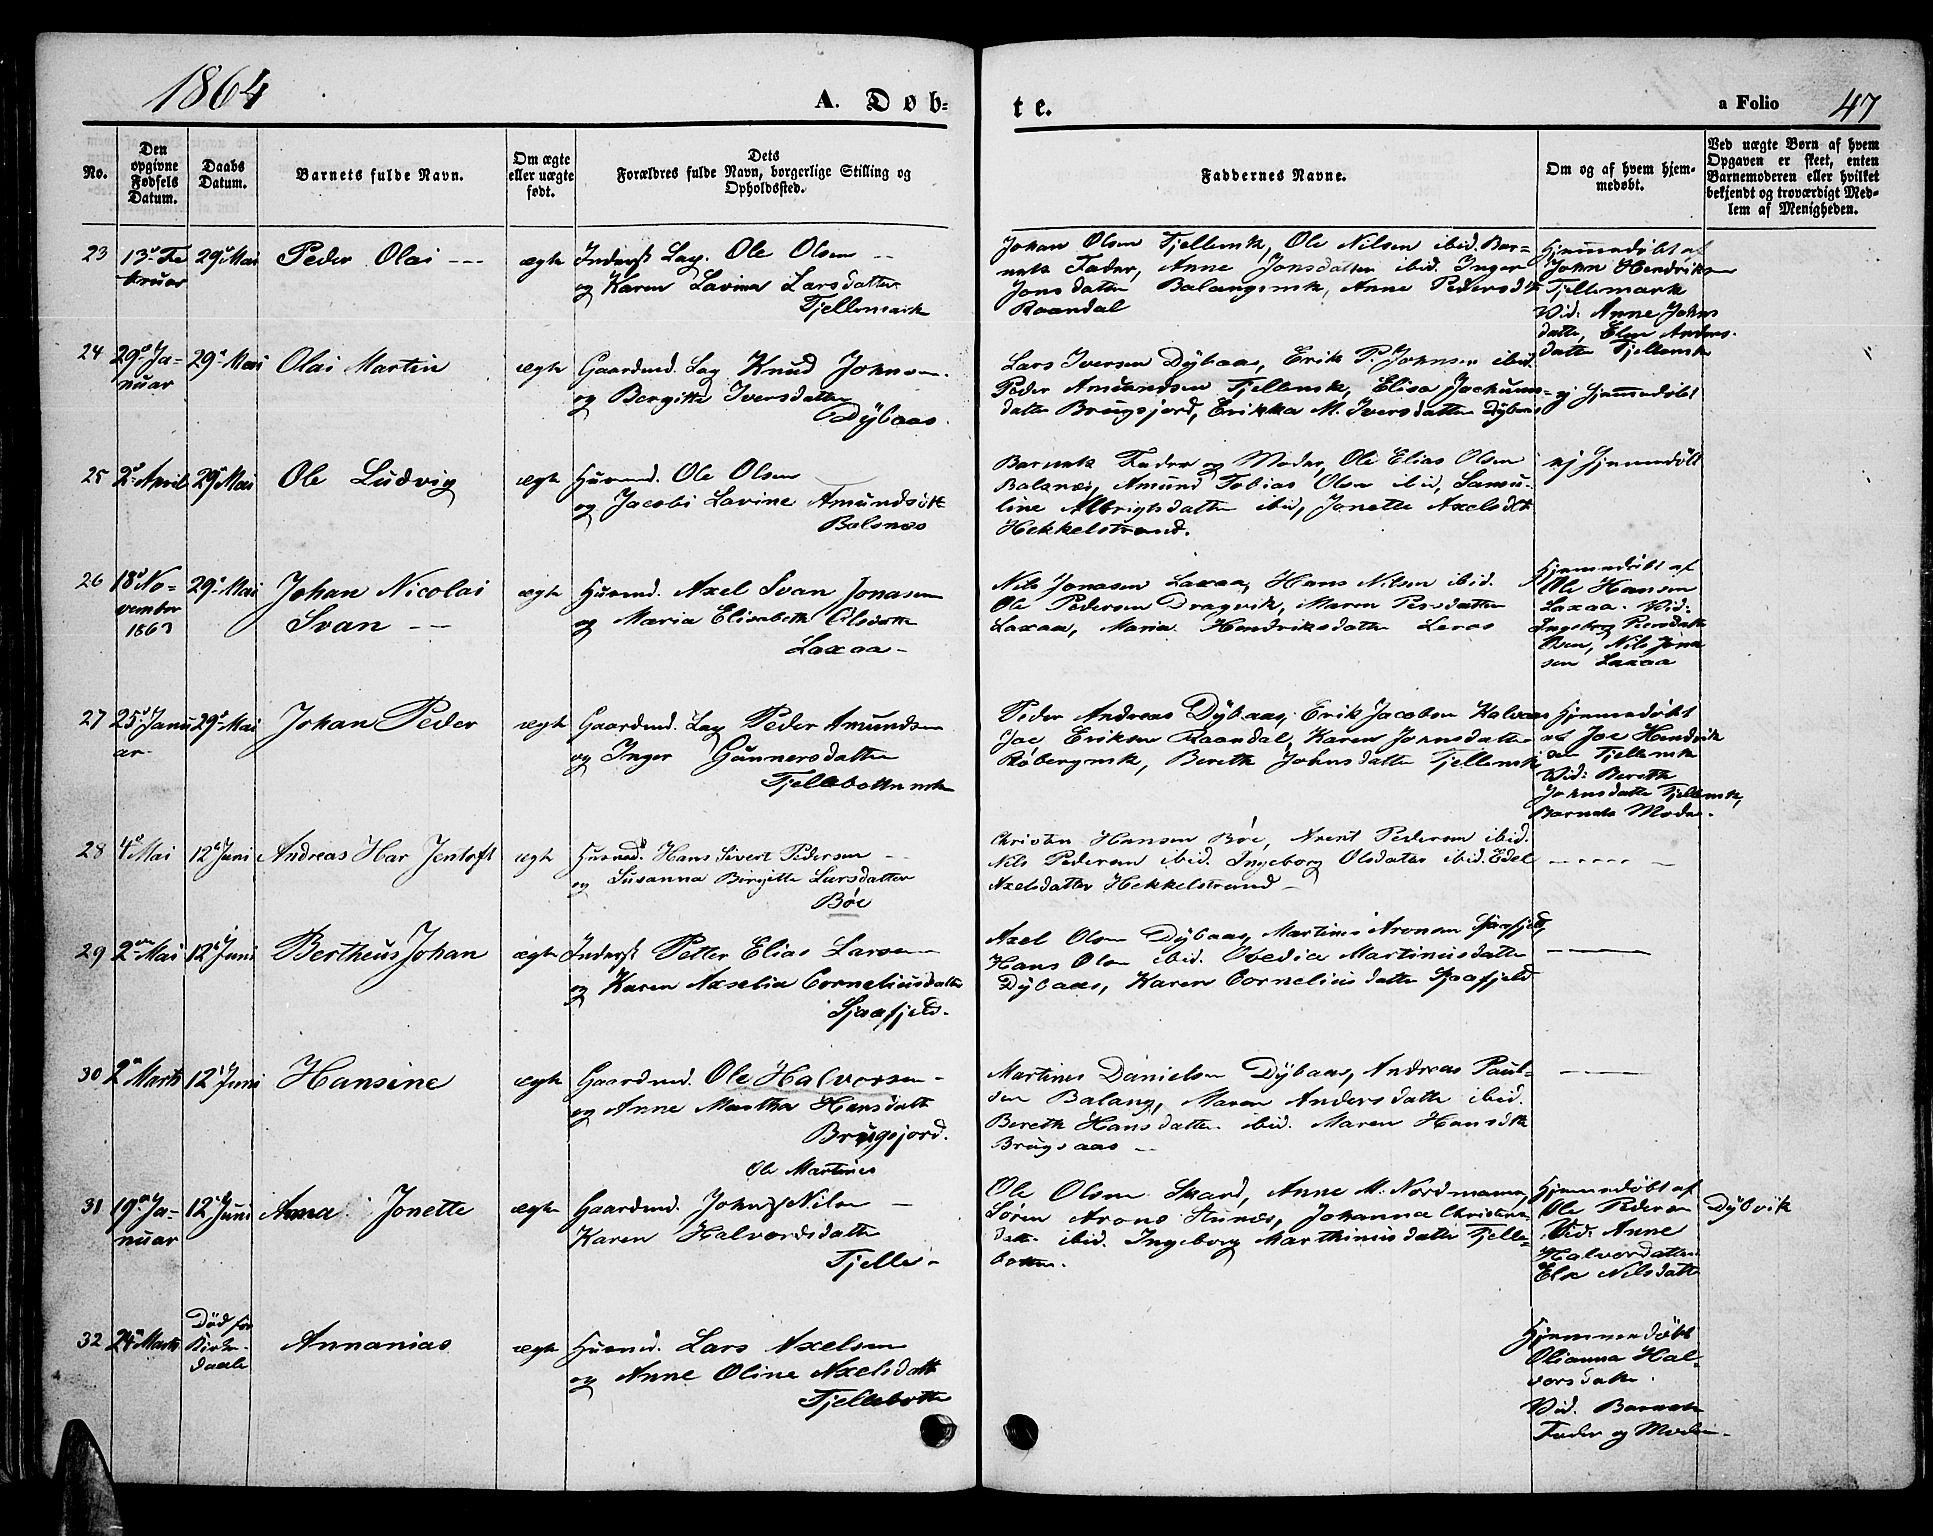 1864
A. Døb-
te.
a Folio 47
No.
Den opgivne Fødsels Datum.
Daabs Datum.
Barnets fulde Navn.
Om ægte eller uægte født.
Dets Forældres fulde Navn, borgerlige Stilling og Opholdssted.
Faddernes Navne.
Om og af hvem hjemmedøbt.
Ved uægte Børn af hvem Opgaven er skeet, enten Barnemoderen eller hvilket bekjendt og troværdigt Medlem af Menigheden.
23 13de Fe- 29de Mai Peder Olai ægte Inderst Lap. Ole Olsen
bruar og Karen Lavina Larsdatter
Fjellemark
Johan Olsen Fjellemk, Ole Nilsen ibid. Bar-
nets Fader, Anne Jonsdatter ibid. Inger
Jonsdatter Balangsmk, Anne Pedersdtr
Raandal
Hjemmedøbt af
John Hendriksen
Fjellemark
Vid: Anne Johns
datter, Elen Anders-
datter Fjellemk
24 29de Ja- 29de Mai Olai Martin ægte Gaardmd. Lap Knud Johnsen
nuar og Bergitte Iversdatter
Dybaas.
Lars Iversen Dybaas, Erik P. Johnsen ibid.
Peder Amundsen Fjellemk, Elisa Jachums-
datter Brugsjord, Erikka M. Iversdatter Dybaas
ej hjemmedøbt
25 2de April 29de Mai Ole Ludvig ægte Husmd. Ole Olsen
og Jacobi Lavine Amundsdtr
Balsnes
Barnets Fader og Moder, Ole Elias Olsen
Balsnes, Amund Tobias Olsen ibid, Samu-
line Albrigtsdatter ibid, Jonette Axelsdtr
Hekkelstrand.
ej hjemmedøbt
26 18de No- 29de Mai Johan Nicolai ægte Husmd. Axel Svan Jonasen
vember Svan og Maria Elisabeth Olsdatter
1863 Laxaa
Nils Jonasen Laxaa, Hans Nilsen ibid.
Ole Pedersen Dragvik, Maren Persdatter
Laxaa, Maria Hendriksdatter Leros
Hjemmedøbt af
Ole Hansen
Laxaa. Vid:
Ingeborg Persdatter
Nils Jona
sen Laxaa
27 25de Janu 29de Mai Johan Peder ægte Gaardmd. Lap Peder Amundsen
ar og Inger Gunnersdatter
Fjellebottenmk
Peder Andreas Dybaas, Erik Jacobsen Kalvaas
Joe Eriksen Raandal, Karen Johnsdatter
Røbergmk, Bereth Johnsdatter Fjellemk
Hjemmedøbt
af Joe Hendrik
sen Fjellemk
Vid: Bereth
Johnsdatter Fjellemk,
Barnets Moder
28 4de Mai 12te Juni Andreas Har Jentoft ægte Husmd. Hans Sivert Pedersen
og Susanna Birgitte Larsdatter
Bøe
Christen Hansen Bøe, Arent Pedersen ibid.
Nils Pedersen ibid. Ingeborg Olsdatter ibid. Edel
Axelsdatter Hekkelstrand
29 2den Mai 12te Juni Bertheus Johan ægte Inderst Petter Elias Larsen
og Karen Axselia Corneliusdatter
Sjaafjeld.
Axel Olsen Dybaas, Martinus Aronsen Sjaafjeld,
Hans Olsen ibid. Obedia Martinusdatter
Dybaas, Karen Corneliusdatter Sjaafjeld
30 2den Marts 12te Juni Hansine ægte Gaardmd. Ole Halvorsen
og Anne Martha Hansdatter
Brugsjord.
Martines Danielsen Dybaas, Andreas Paul-
sen Balang, Maren Andersdatter ibid.
Bereth Hansdatter ibid. Maren Hansdtr
Brugsaas
Ole Martines
31 19de Ja- 12te Juni Anna Jonette ægte Gaardmd. John Nilsen
nuar Karen Halvorsdatter
Fjelle
Ole Olsen Skard, Anne M. Nordmann,
Søren Arons Hunæs, Johanna Christens
datter ibid. Ingeborg Marthinusdatter Fjelle-
botten.
Hjemmedøbt af
Ole Pedersen Dybvik
Vid: Anne
Halvordatter
Else Nilsdatter
32 24de Marts Død før Annanias ægte Husmd. Lars Axelsen
Kirke- og Anne Oline Axelsdatter
daab Fjellebotten
Hjemmedøbt
Olianna Hal-
vorsdatter
Vid. Barnets
Fader og Moder